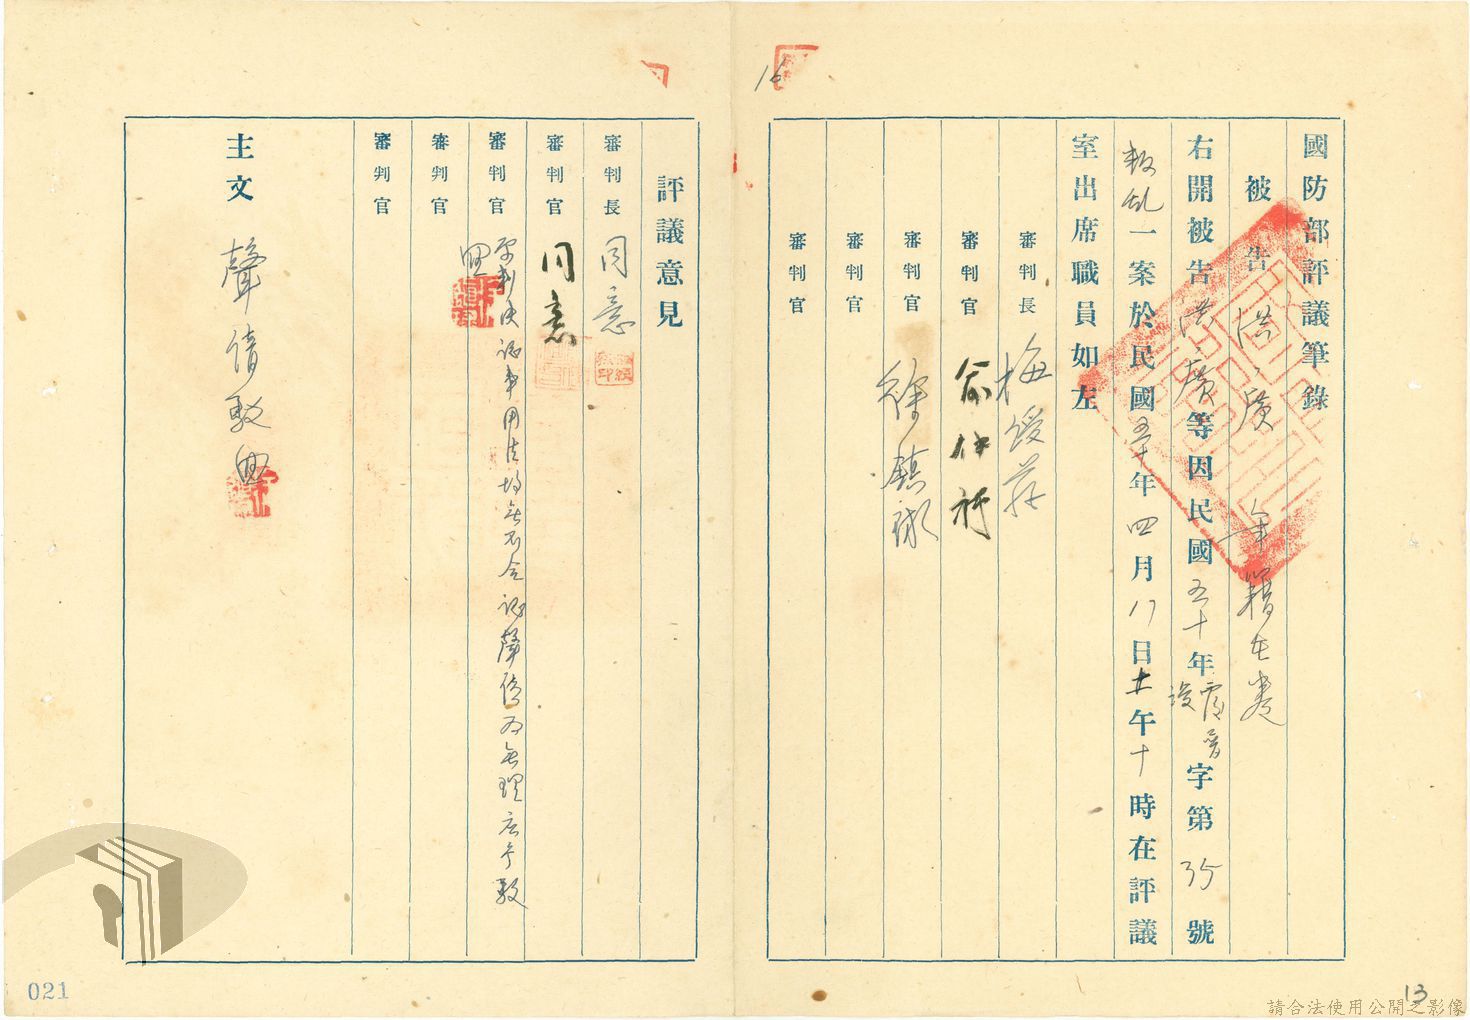 國防部評議筆錄
被告 洪廣 年籍在卷
右開被告洪廣等因民國五十年 覆普 字第35號
叛乱一案於民國五十年四月八日上午十時在評議
室出席職員如左
審判長 梅綬蓀
審判官
審判官 徐鎮
審判官
審判官
評議意見
審判長 同意
審判官 同意
審判官 原判決認事用法均無不合認聲請為無理應予駁
審判官
審判官
主文 聲請駁
021
13
請合法使用公開之影像